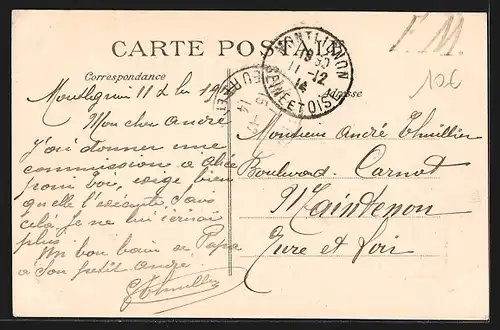 F. M.
CARTE POSTALE
MONTLIGNON
11-12
14
SEINE ET OISE
10€
Correspondance
Adresse
Montlignon 11 2
Mon cher André
J'ai donner une
commission a Alice
pour toi, exige bien
qu'elle l'exécute, sans
cela je ne lui écrirai
plus
Un bon de Papa
a son petit André
Thuillier
Monsieur André Thuillier
Boulevard Carnot
Maintenon
Eure et Loir